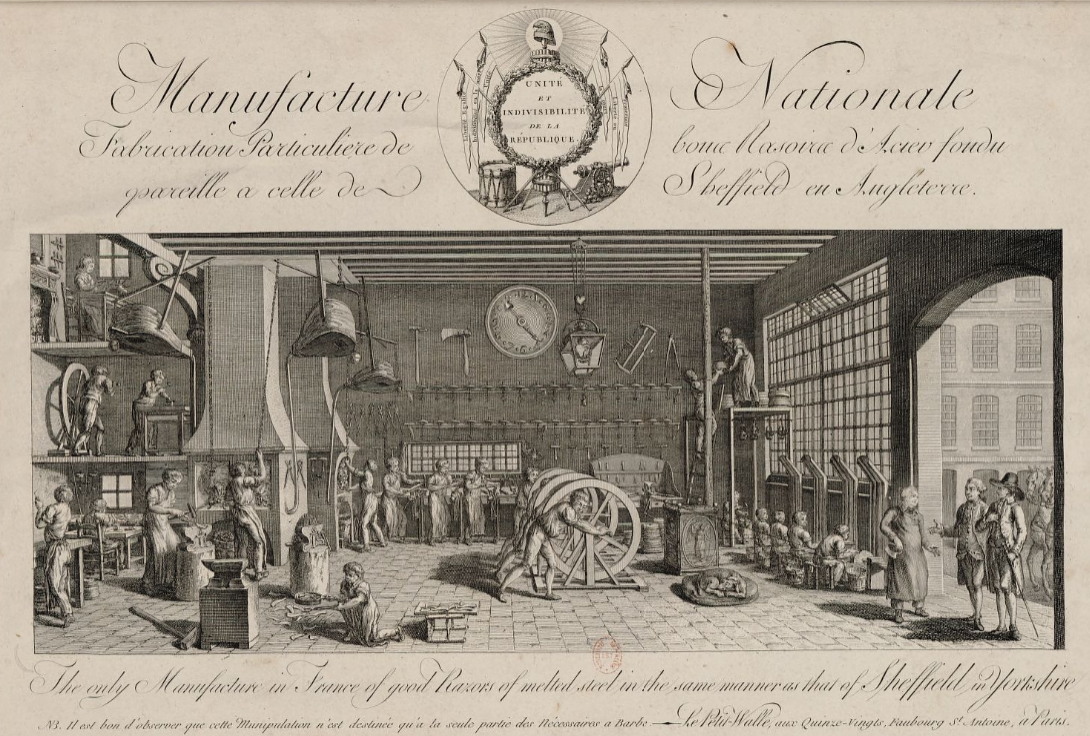 Manufacture Nationale
UNITÉ
ET
INDIVISIBILITÉ
DE LA
RÉPUBLIQUE.
Fabrication Particuliere de bons Rasoirs d'Acier fondu
pareille a celle de Sheffield en Angleterre.
The only Manufacture in France of good Razors of melted steel in the same manner as that of Sheffield in Yorkshire
NB. Il est bon d'observer que cette Manipulation n'est destinée qu'a la seule partie des Nécessaires a Barbe — Le Petit Walle, aux Quinze-Vingts, Faubourg St. Antoine, à Paris.